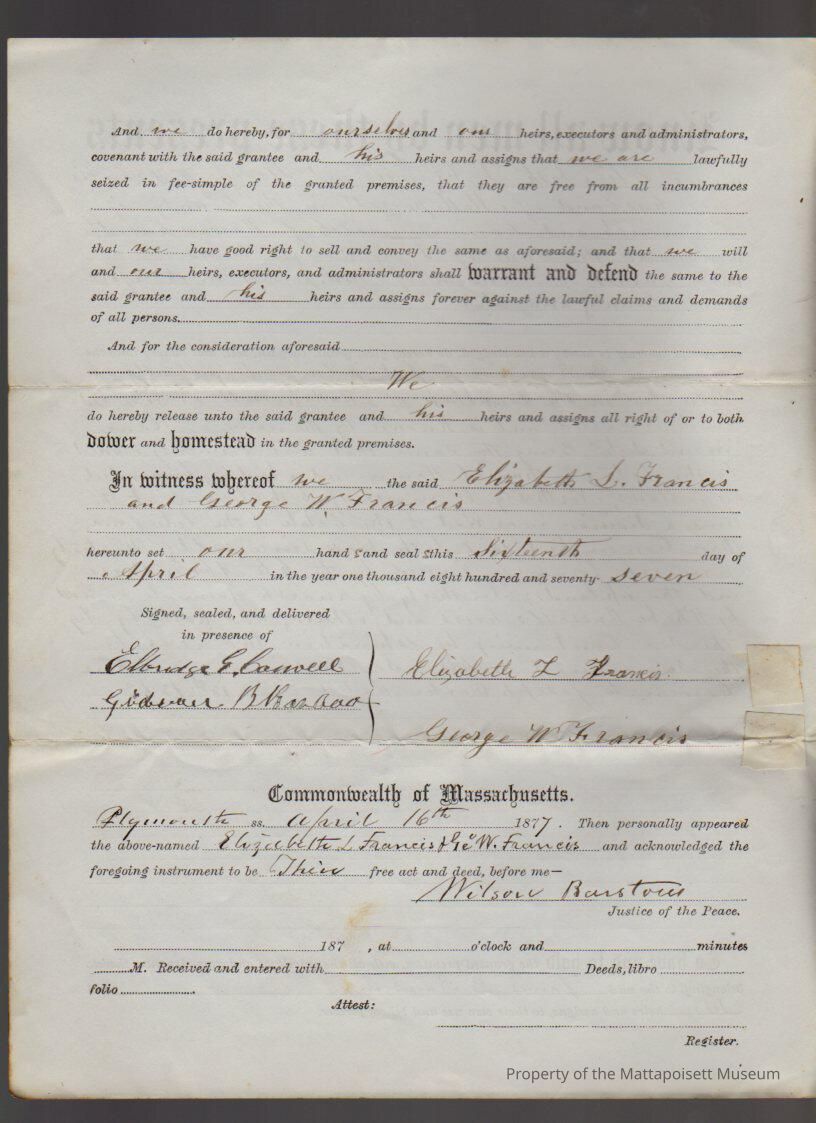 And we do hereby, for ourselves and our heirs, executors and administrators,
covenant with the said grantee and his heirs and assigns that we are lawfully
seized in fee-simple of the granted premises, that they are free from all incumbrances
that we have good right to sell and convey the same as aforesaid; and that we will
and our heirs, executors, and administrators shall warrant and defend the same to the
said grantee and his heirs and assigns forever against the lawful claims and demands
of all persons.
And for the consideration aforesaid
We
do hereby release unto the said grantee and his heirs and assigns all right of or to both
dower and homestead in the granted premises.
In witness whereof we the said Elizabeth L. Francis
and George W Francis
hereunto set our hand s and seal s this Sixteenth day of
April in the year one thousand eight hundred and seventy- seven
Signed, sealed, and delivered
in presence of
Elbridge G. Caswell
Elizabeth L Francis
George W Francis
Commonwealth of Massachusetts.
Plymouth ss. April 16th 1877. Then personally appeared
the above-named Elizabeth L Francis & Geo W. Francis and acknowledged the
foregoing instrument to be Their free act and deed, before me—
Wilson Barstow
Justice of the Peace.
187 , at o'clock and minutes
M. Received and entered with Deeds, libro
folio
Attest:
Register.
Property of the Mattapoisett Museum